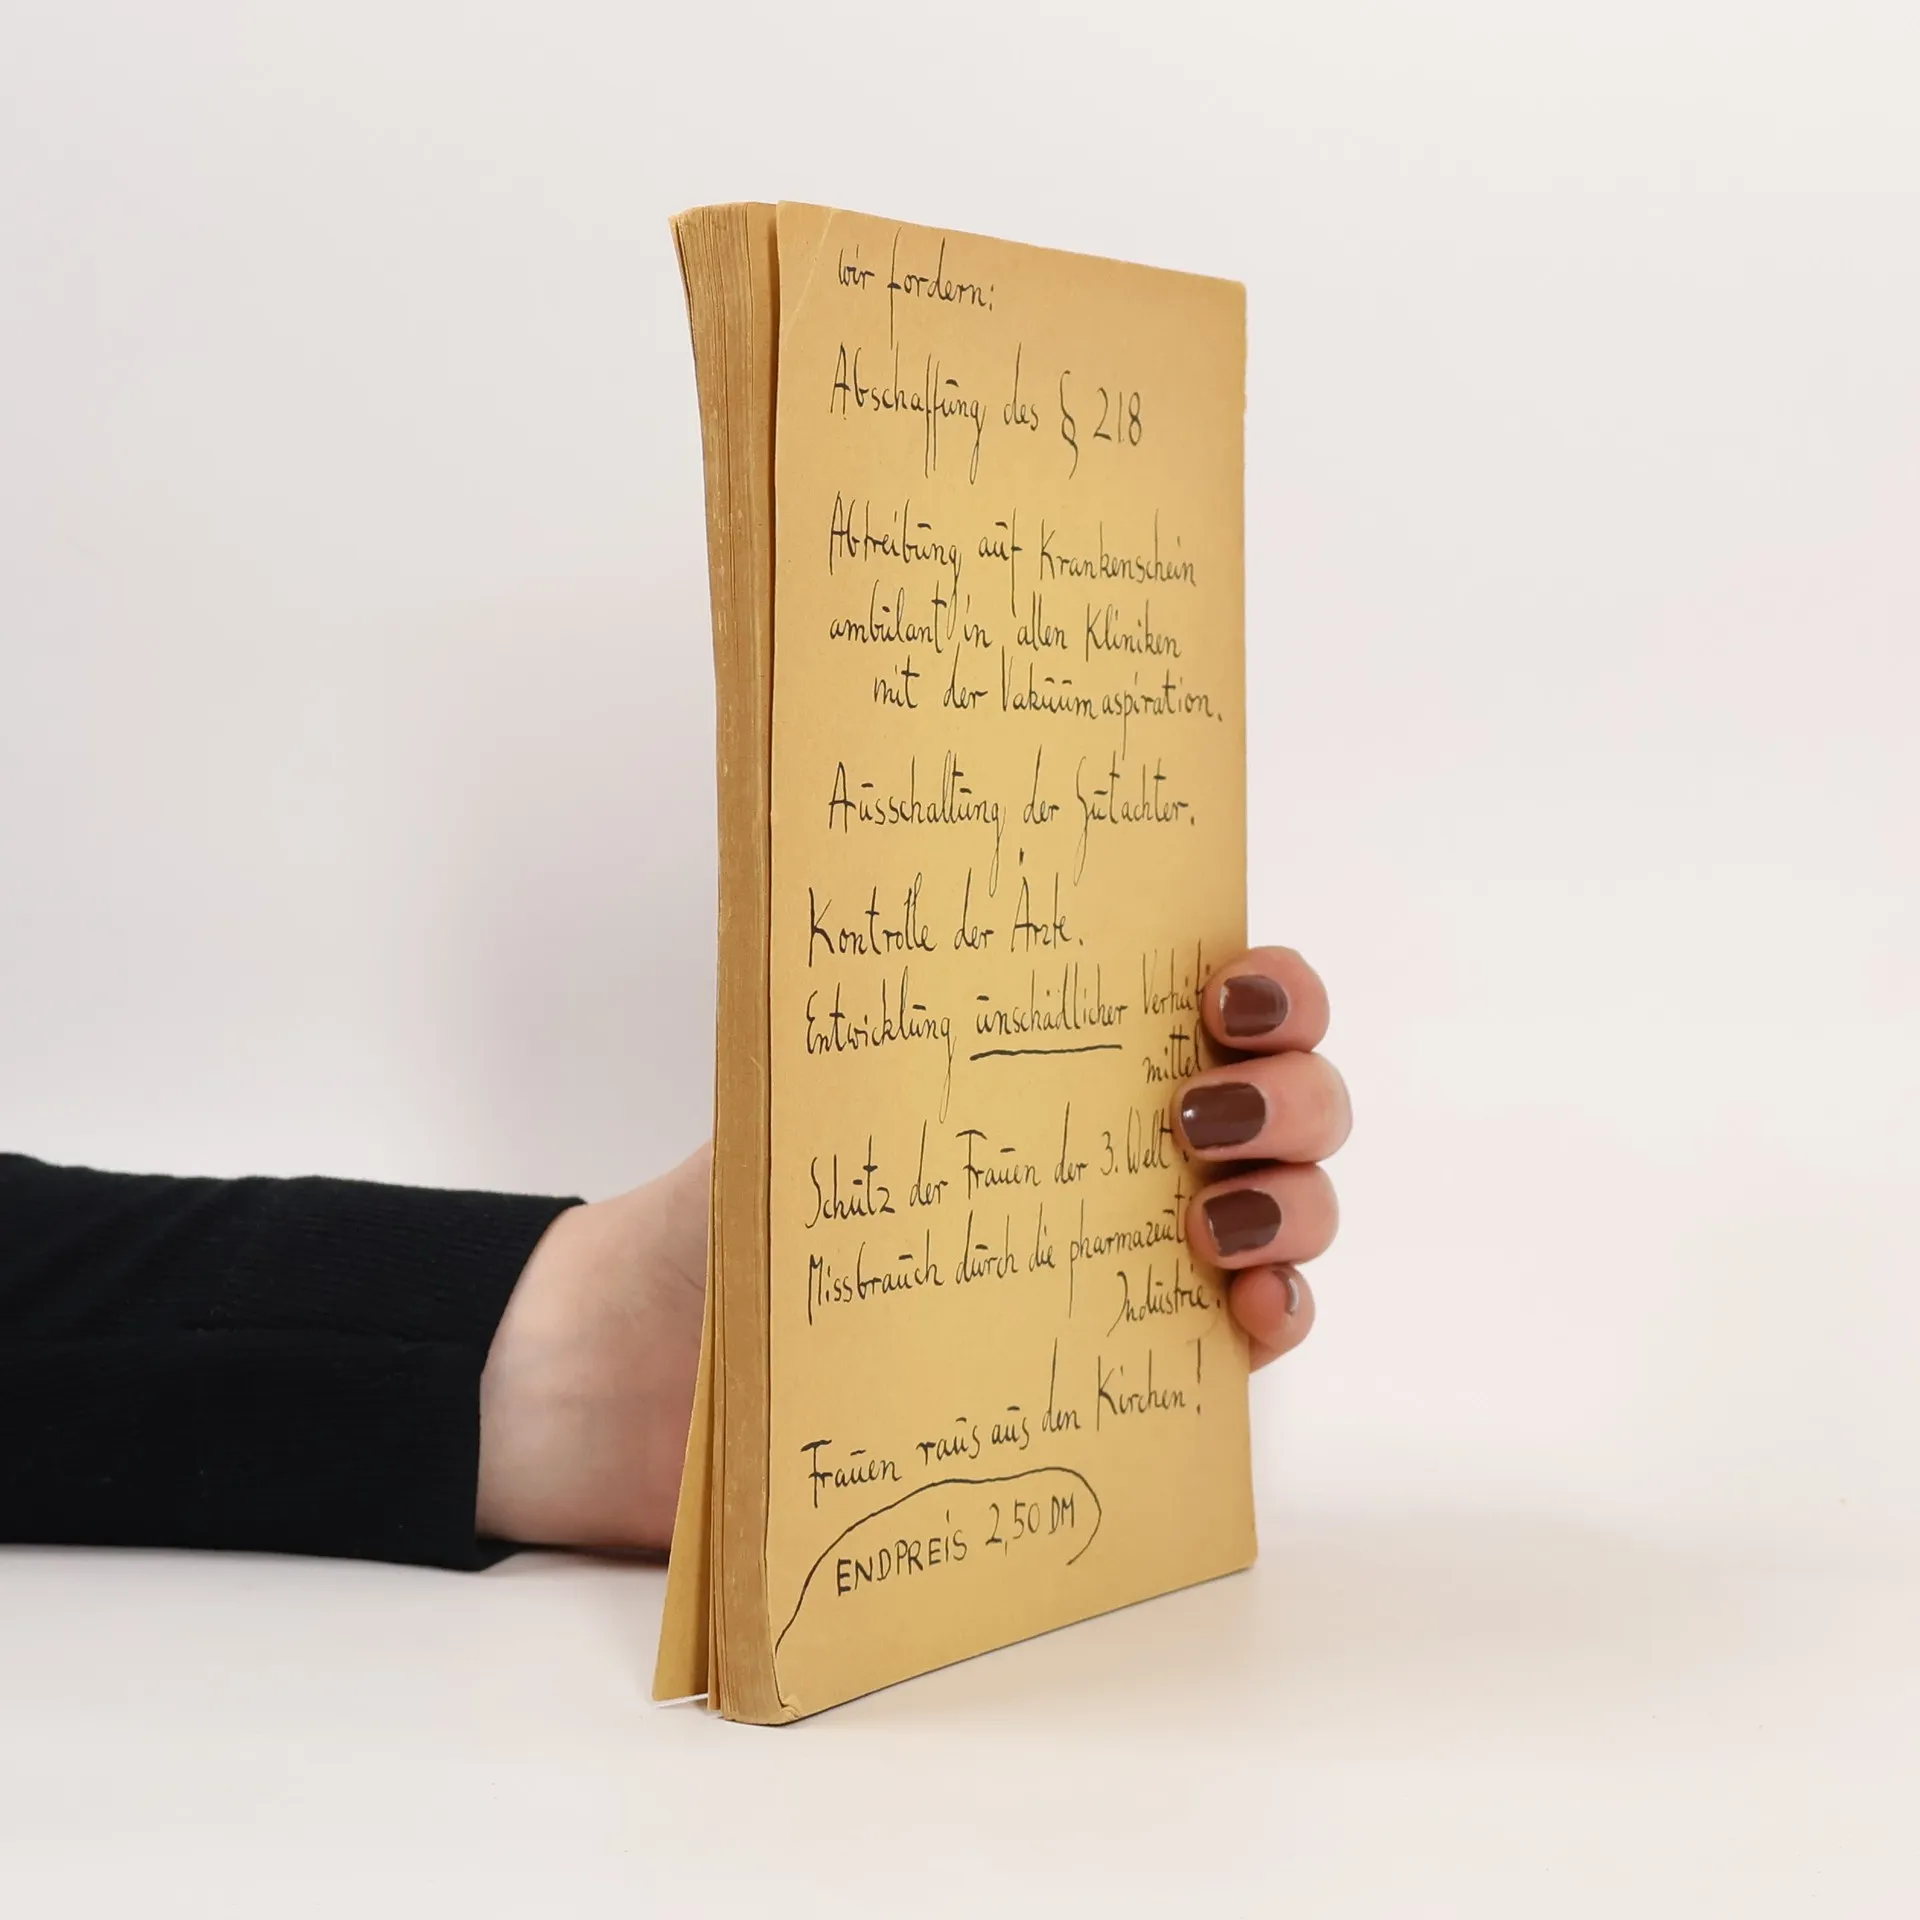 wir fordern:
Abschaffung des § 218
Abtreibung auf Krankenschein
ambulant in allen Kliniken
mit der Vakuumaspiration.
Ausschaltung der Gutachter.
Kontrolle der Ärzte.
Entwicklung unschädlicher Verhüt
mittel
Schutz der Frauen der 3. Welt
Missbrauch durch die pharmazeut
Industrie.
Frauen raus aus den Kirchen!
ENDPREIS 2,50 DM